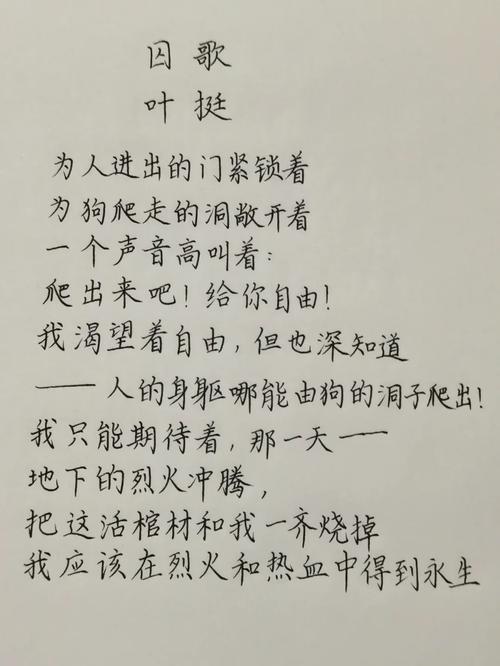 囚歌
叶挺
为人进出的门紧锁着
为狗爬走的洞敞开着
一个声音高叫着:
爬出来吧!给你自由!
我渴望着自由,但也深知道
——人的身躯哪能由狗的洞子爬出!
我只能期待着,那一天——
地下的烈火冲腾,
把这活棺材和我一齐烧掉
我应该在烈火和热血中得到永生